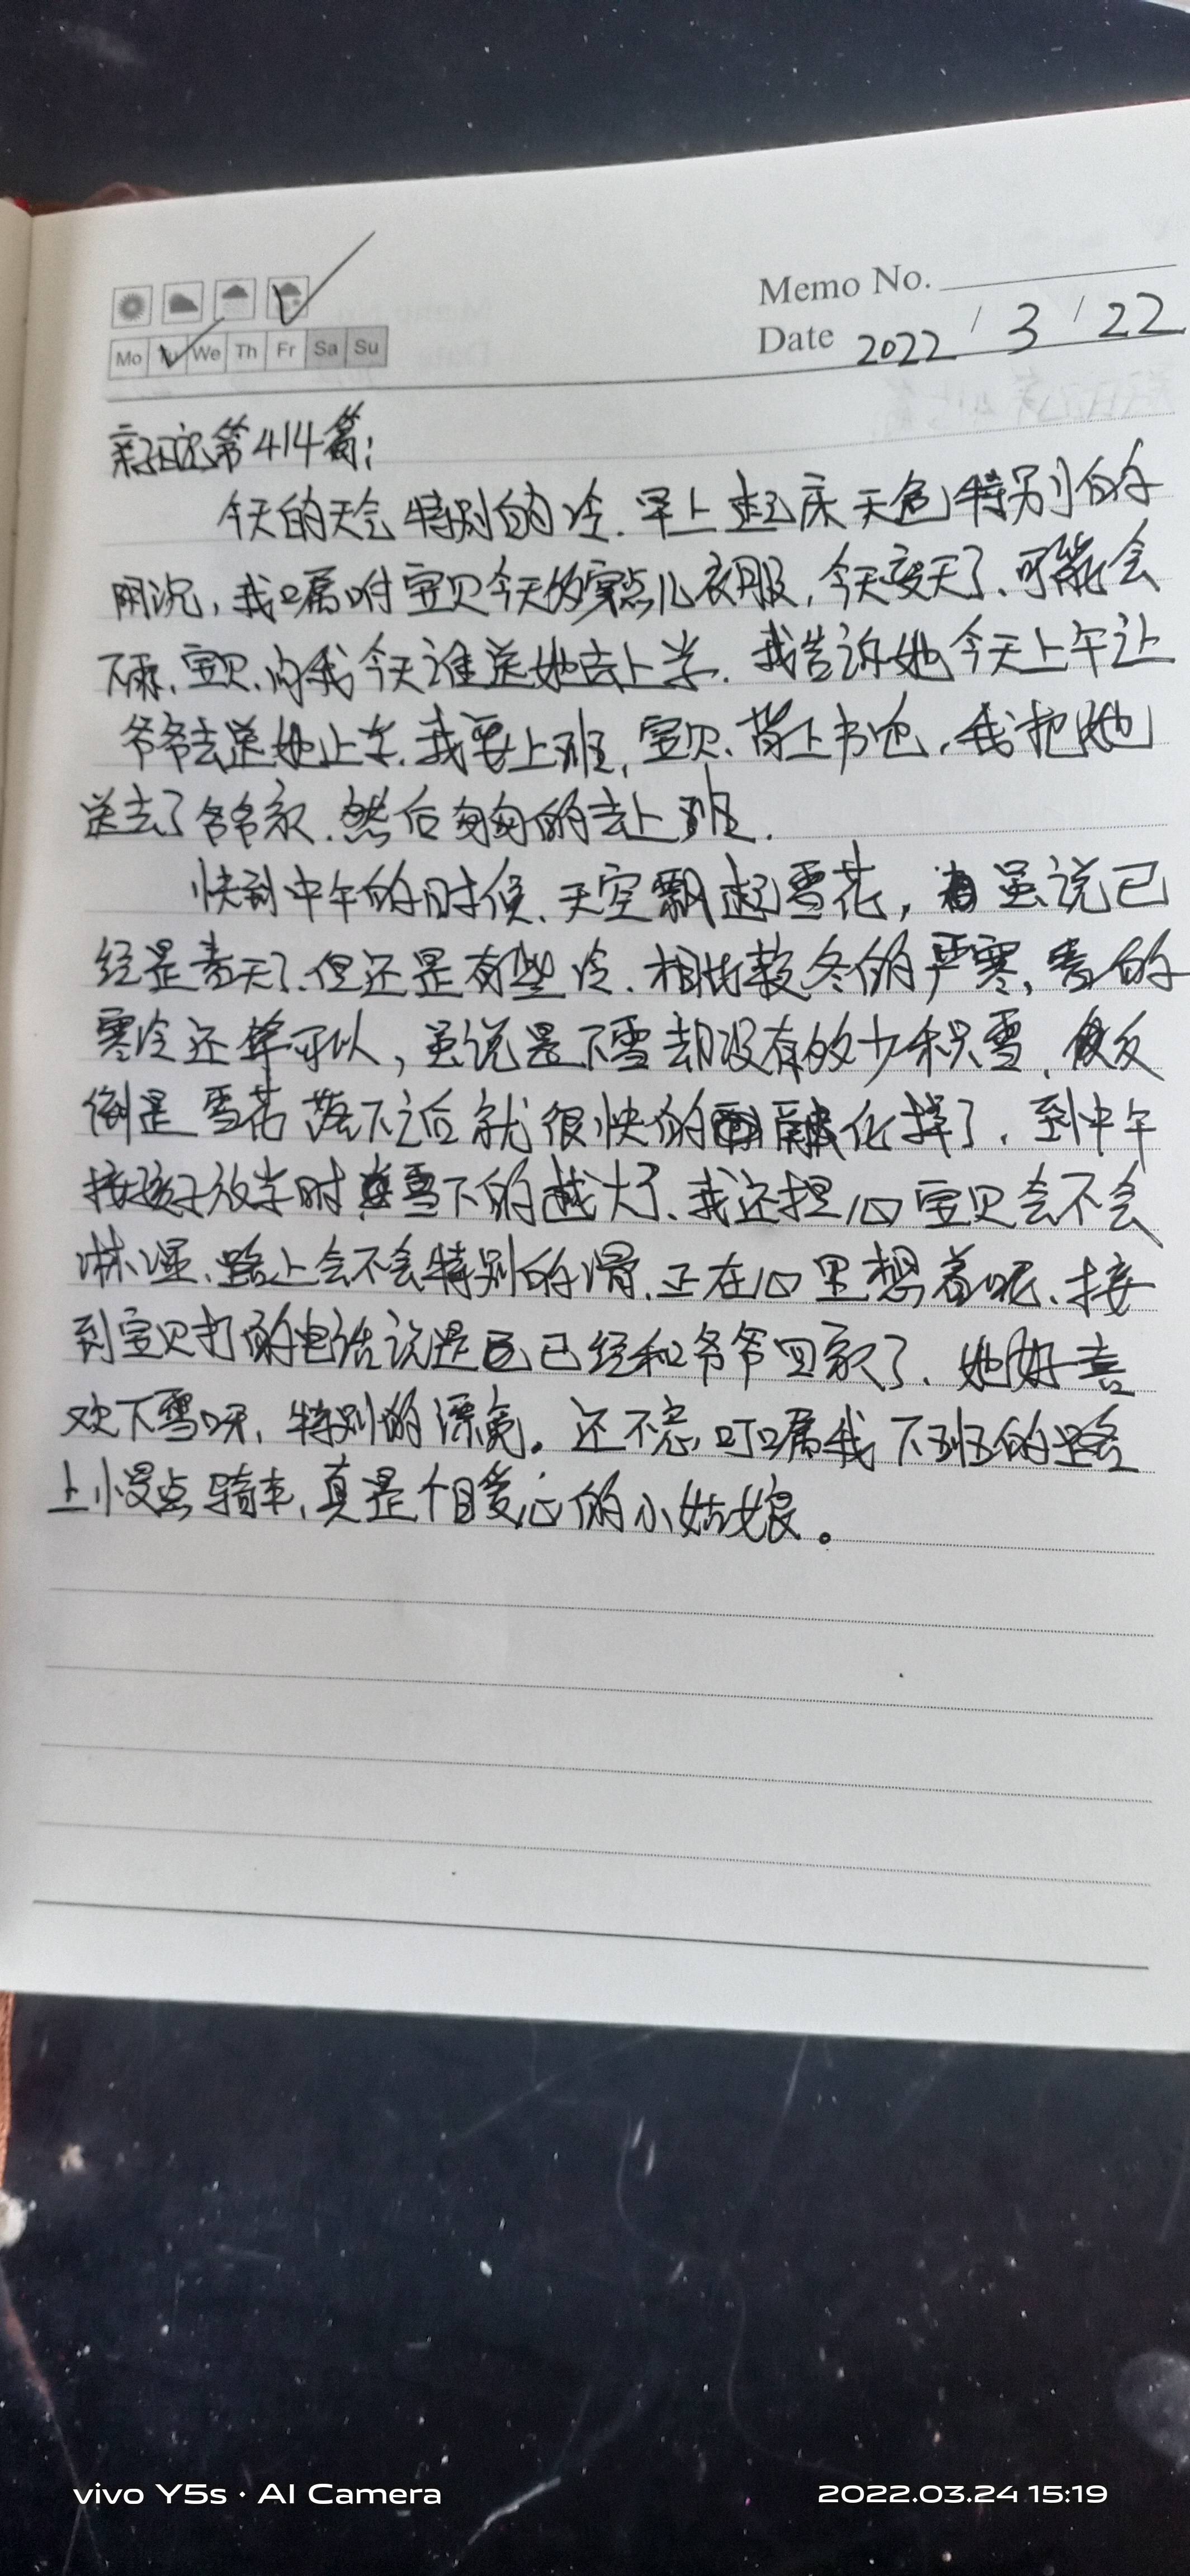 Memo No.
Mo Tu We Th Fr Sa Su
Date 2022 / 3 / 22
亲子日记第414篇:
今天的天气特别的冷.早上起床天色特别的
阴沉,我嘱咐宝贝今天多穿点儿衣服,今天变天了、可能会
下雨、宝贝、问我今天谁送她去上学.我告诉她今天上午让
爷爷去送她上学.我要上班,宝贝、背上书包,我把她
送去了爷爷家.然后匆匆的去上班.
快到中午的时候、天空飘起雪花,虽说已
经是春天了、但还是有些冷.相比较冬的严寒,春的
寒冷还算可以,虽说是下雪却没有多少积雪、反
倒是雪花落下之后就很快的融化掉了.到中午
接孩子放学时雪下的越大了、我还担心宝贝会不会
淋湿、路上会不会特别的滑.正在心里想着呢、接
到宝贝打的电话说是已经和爷爷回家了、她好喜
欢下雪呀,特别的漂亮。还不忘叮嘱我下班的路
上慢点骑车,真是个有爱心的小姑娘。
vivo Y5s · AI Camera
2022.03.24 15:19